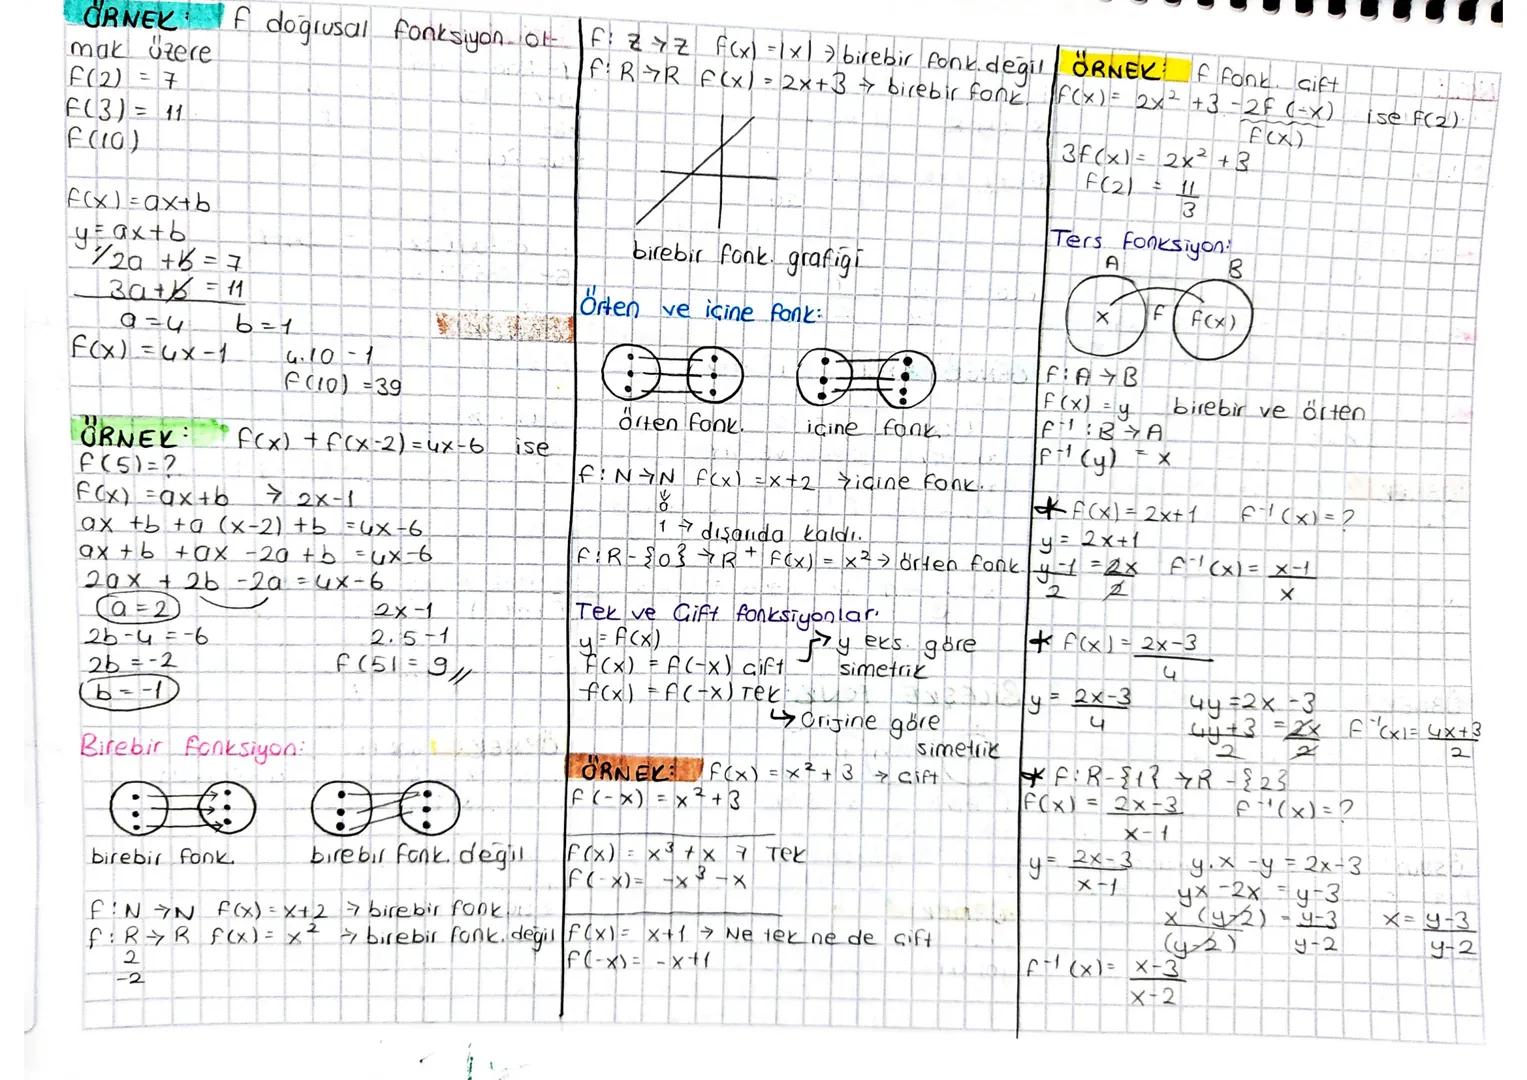 ÖRNEK: f doğrusal fonksiyon ol-
mak üzere
f(2) = 7
f(3) = 11
f(10)
f(x) = ax+b
y = ax+b
-1/ 2a + b = 7
3a + b = 11
a = 4 b = 1
f(x) = 4x-1 4.10 - 1
f(10) = 39
ÖRNEK: f(x) + f(x-2) = 4x-6 ise
f(5) = ?
f(x) = ax+b → 2x-1
ax + b + a (x-2) + b = 4x-6
ax + b + ax - 2a + b = 4x-6
2ax + 2b - 2a = 4x-6
a = 2 2x-1
2b-4 = -6 2.5-1
2b = -2 f(5) = 9 //
b = -1
Birebir fonksiyon:
birebir fonk. birebir fonk. değil
f: N → N f(x) = x+2 → birebir fonk.
f: R → R f(x) = x² → birebir fonk. değil
2
-2
f: Z → Z f(x) = |x| → birebir fonk. değil
f: R → R f(x) = 2x+3 → birebir fonk.
birebir fonk. grafiği
Örten ve içine fonk:
örten fonk. içine fonk.
f: N → N f(x) = x+2 → içine fonk.
0
1 → dışarıda kaldı.
f: R-{0} → R⁺ f(x) = x² → örten fonk
Tek ve Çift fonksiyonlar:
y = f(x) → y eks. göre
f(x) = f(-x) çift simetrik
-f(x) = f(-x) Tek
↳ Orijine göre
simetrik
ÖRNEK: f(x) = x² + 3 → çift
f(-x) = x² + 3
f(x) = x³ + x → Tek
f(-x) = -x³ - x
f(x) = x+1 → Ne tek ne de çift
f(-x) = -x+1
ÖRNEK: f fonk. çift
f(x) = 2x² + 3 - 2f(-x) ise f(2)
f(x)
3f(x) = 2x² + 3
f(2) = 11/3
Ters fonksiyon:
A B
x f f(x)
f: A → B
f(x) = y birebir ve örten
f⁻¹: B → A
f⁻¹(y) = x
* f(x) = 2x+1 f⁻¹(x) = ?
y = 2x+1
y-1/2 = 2x/2 f⁻¹(x) = x-1/x
* f(x) = 2x-3/4
y = 2x-3/4 4y = 2x-3
4y+3/2 = 2x/2 f⁻¹(x) = 4x+3/2
* f: R-{1} → R-{2}
f(x) = 2x-3/x-1 f⁻¹(x) = ?
y = 2x-3/x-1 y.x - y = 2x-3
yx - 2x = y-3
x (y-2)/(y-2) = y-3/y-2 x = y-3/y-2
f⁻¹(x) = x-3/x-2